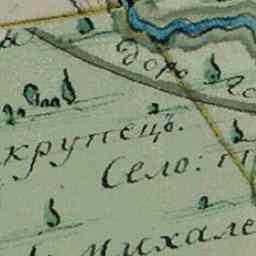 доро
крупецъ.
Село: П
михале